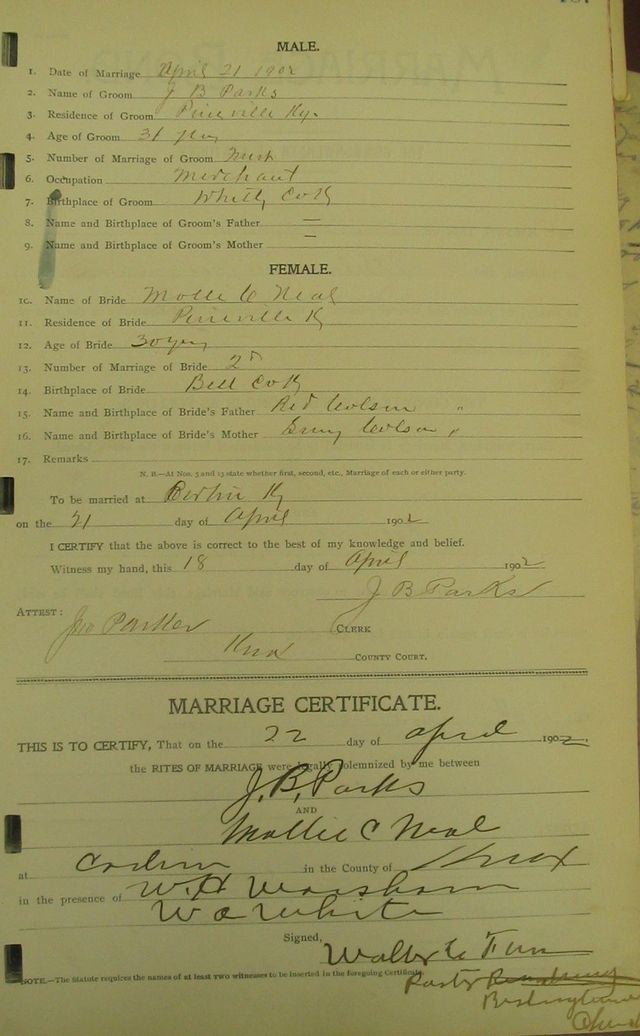 MALE.
1. Date of Marriage April 21 1902
2. Name of Groom J B Parks
3. Residence of Groom Pineville Ky.
4. Age of Groom 31 yrs
5. Number of Marriage of Groom First
6. Occupation Merchant
7. Birthplace of Groom Whitly Co K
8. Name and Birthplace of Groom's Father —
9. Name and Birthplace of Groom's Mother —
FEMALE.
10. Name of Bride Molle C Neal
11. Residence of Bride Pineville K
12. Age of Bride 30 yrs
13. Number of Marriage of Bride 2d
14. Birthplace of Bride Bell Co K
15. Name and Birthplace of Bride's Father Colson "
16. Name and Birthplace of Bride's Mother Colson "
17. Remarks
N. B.—At Nos. 5 and 13 state whether first, second, etc., Marriage of each or either party.
To be married at Ky
on the 21 day of April 1902
I CERTIFY that the above is correct to the best of my knowledge and belief.
Witness my hand, this 18 day of April 1902
J B Parks
ATTEST:
Jno Parker CLERK
Knox COUNTY COURT.
MARRIAGE CERTIFICATE.
THIS IS TO CERTIFY, That on the 22 day of April 1902.
the RITES OF MARRIAGE were legally solemnized by me between
J. B. Parks
AND
Mollie C Neal
at in the County of Knox
in the presence of W H Worsham
W a White
Signed,
Pastor
NOTE.—The Statute requires the names of at least two witnesses to be inserted in the foregoing Certificate.